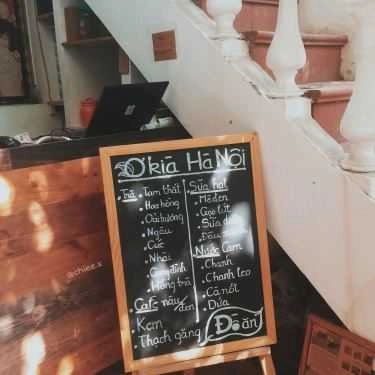 Ơ kìa Hà Nội
Trà
Tam thất
Hoa hồng
Oải hương
Ngâu
Cúc
Nhài
Cung đình
Hồng trà
Cafe nâu/đen
Kem
Thạch găng
Sữa hạt
Mè đen
Gạo lứt
Sữa
Đậu
Nước Cam
Chanh
Chanh leo
Cà rốt
Dừa
Đồ ăn
@chiee.s